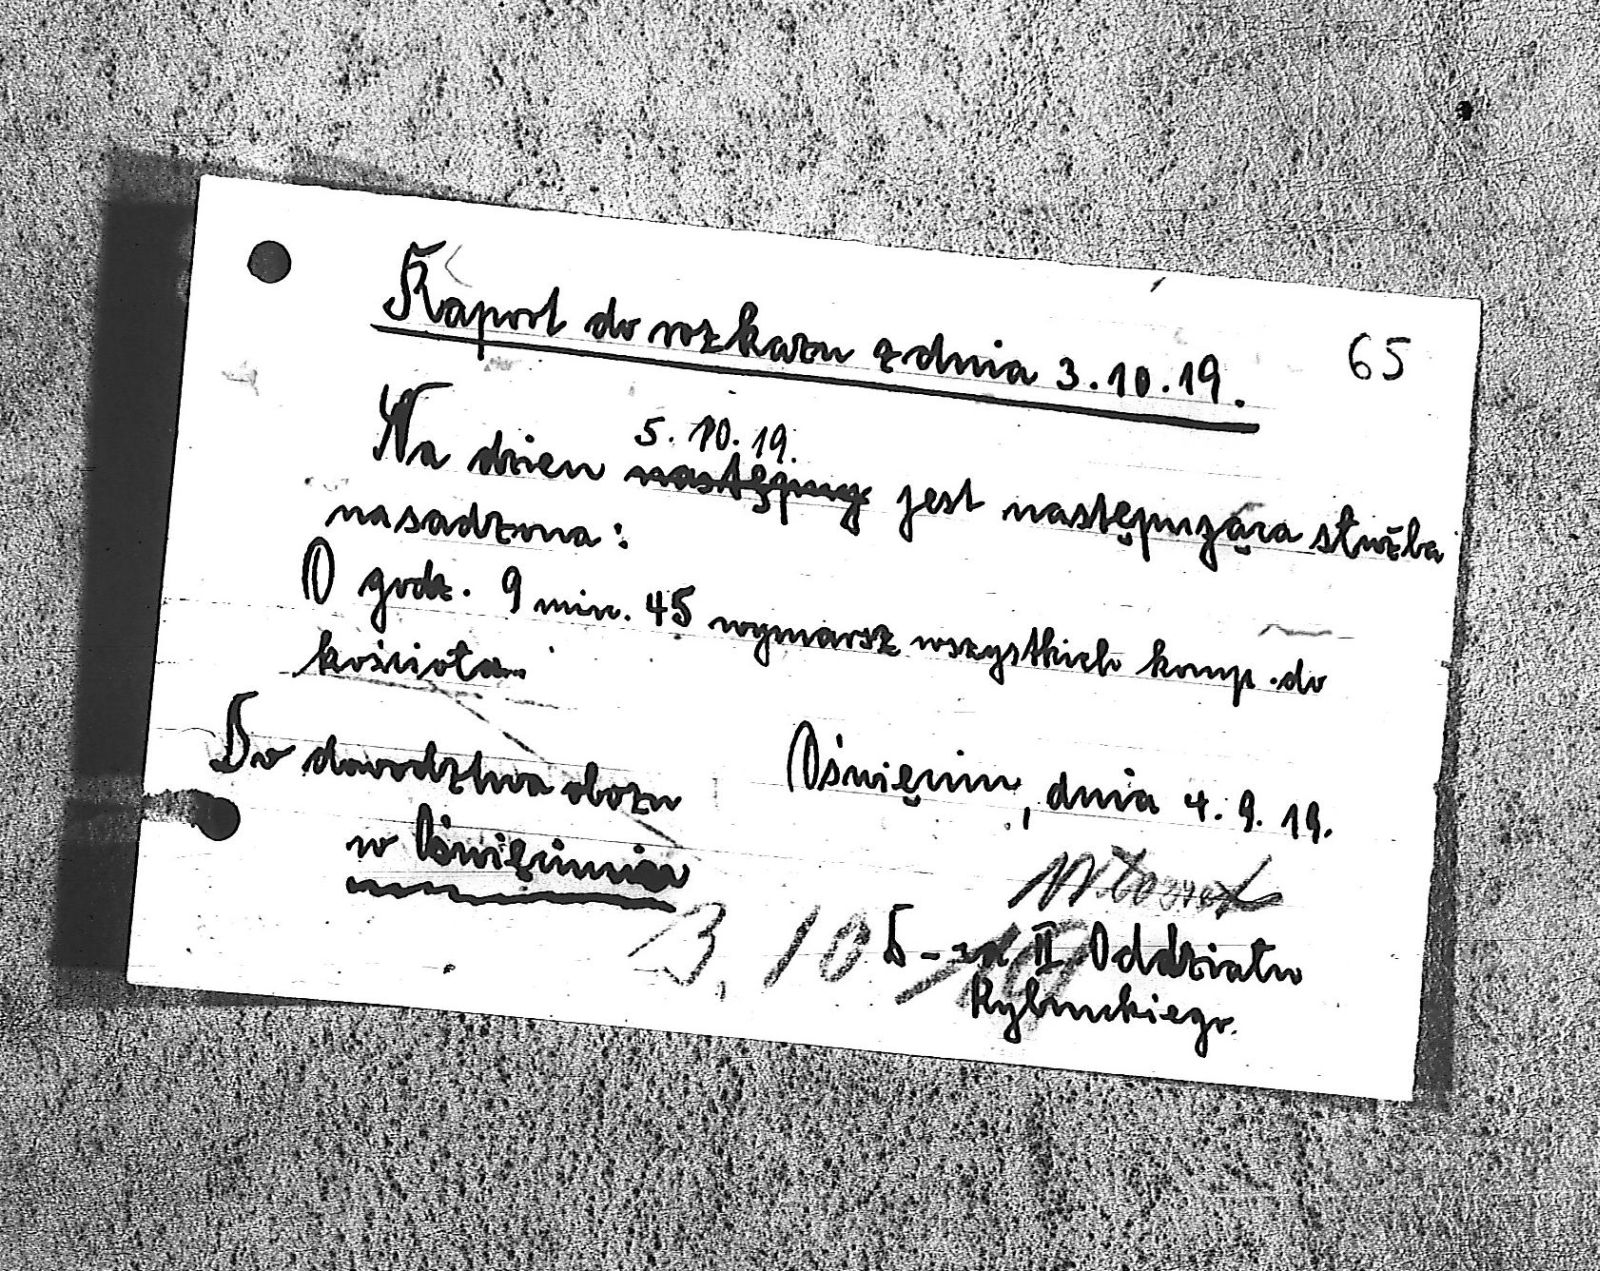 Raport do rozkazu z dnia 3.10.19.
65
5. 10. 19.
Na dzien następny jest następuząca służba
nasadzona:
O godz. 9 min. 45 wymarsz wszystkich komp. do
kościoła.
Do dowodztwa obozu
w Oświęcimiu
Oświęcim, dnia 4. 9. 19.
D-ca II Oddziału
Rybnickiego.
3. 10 19